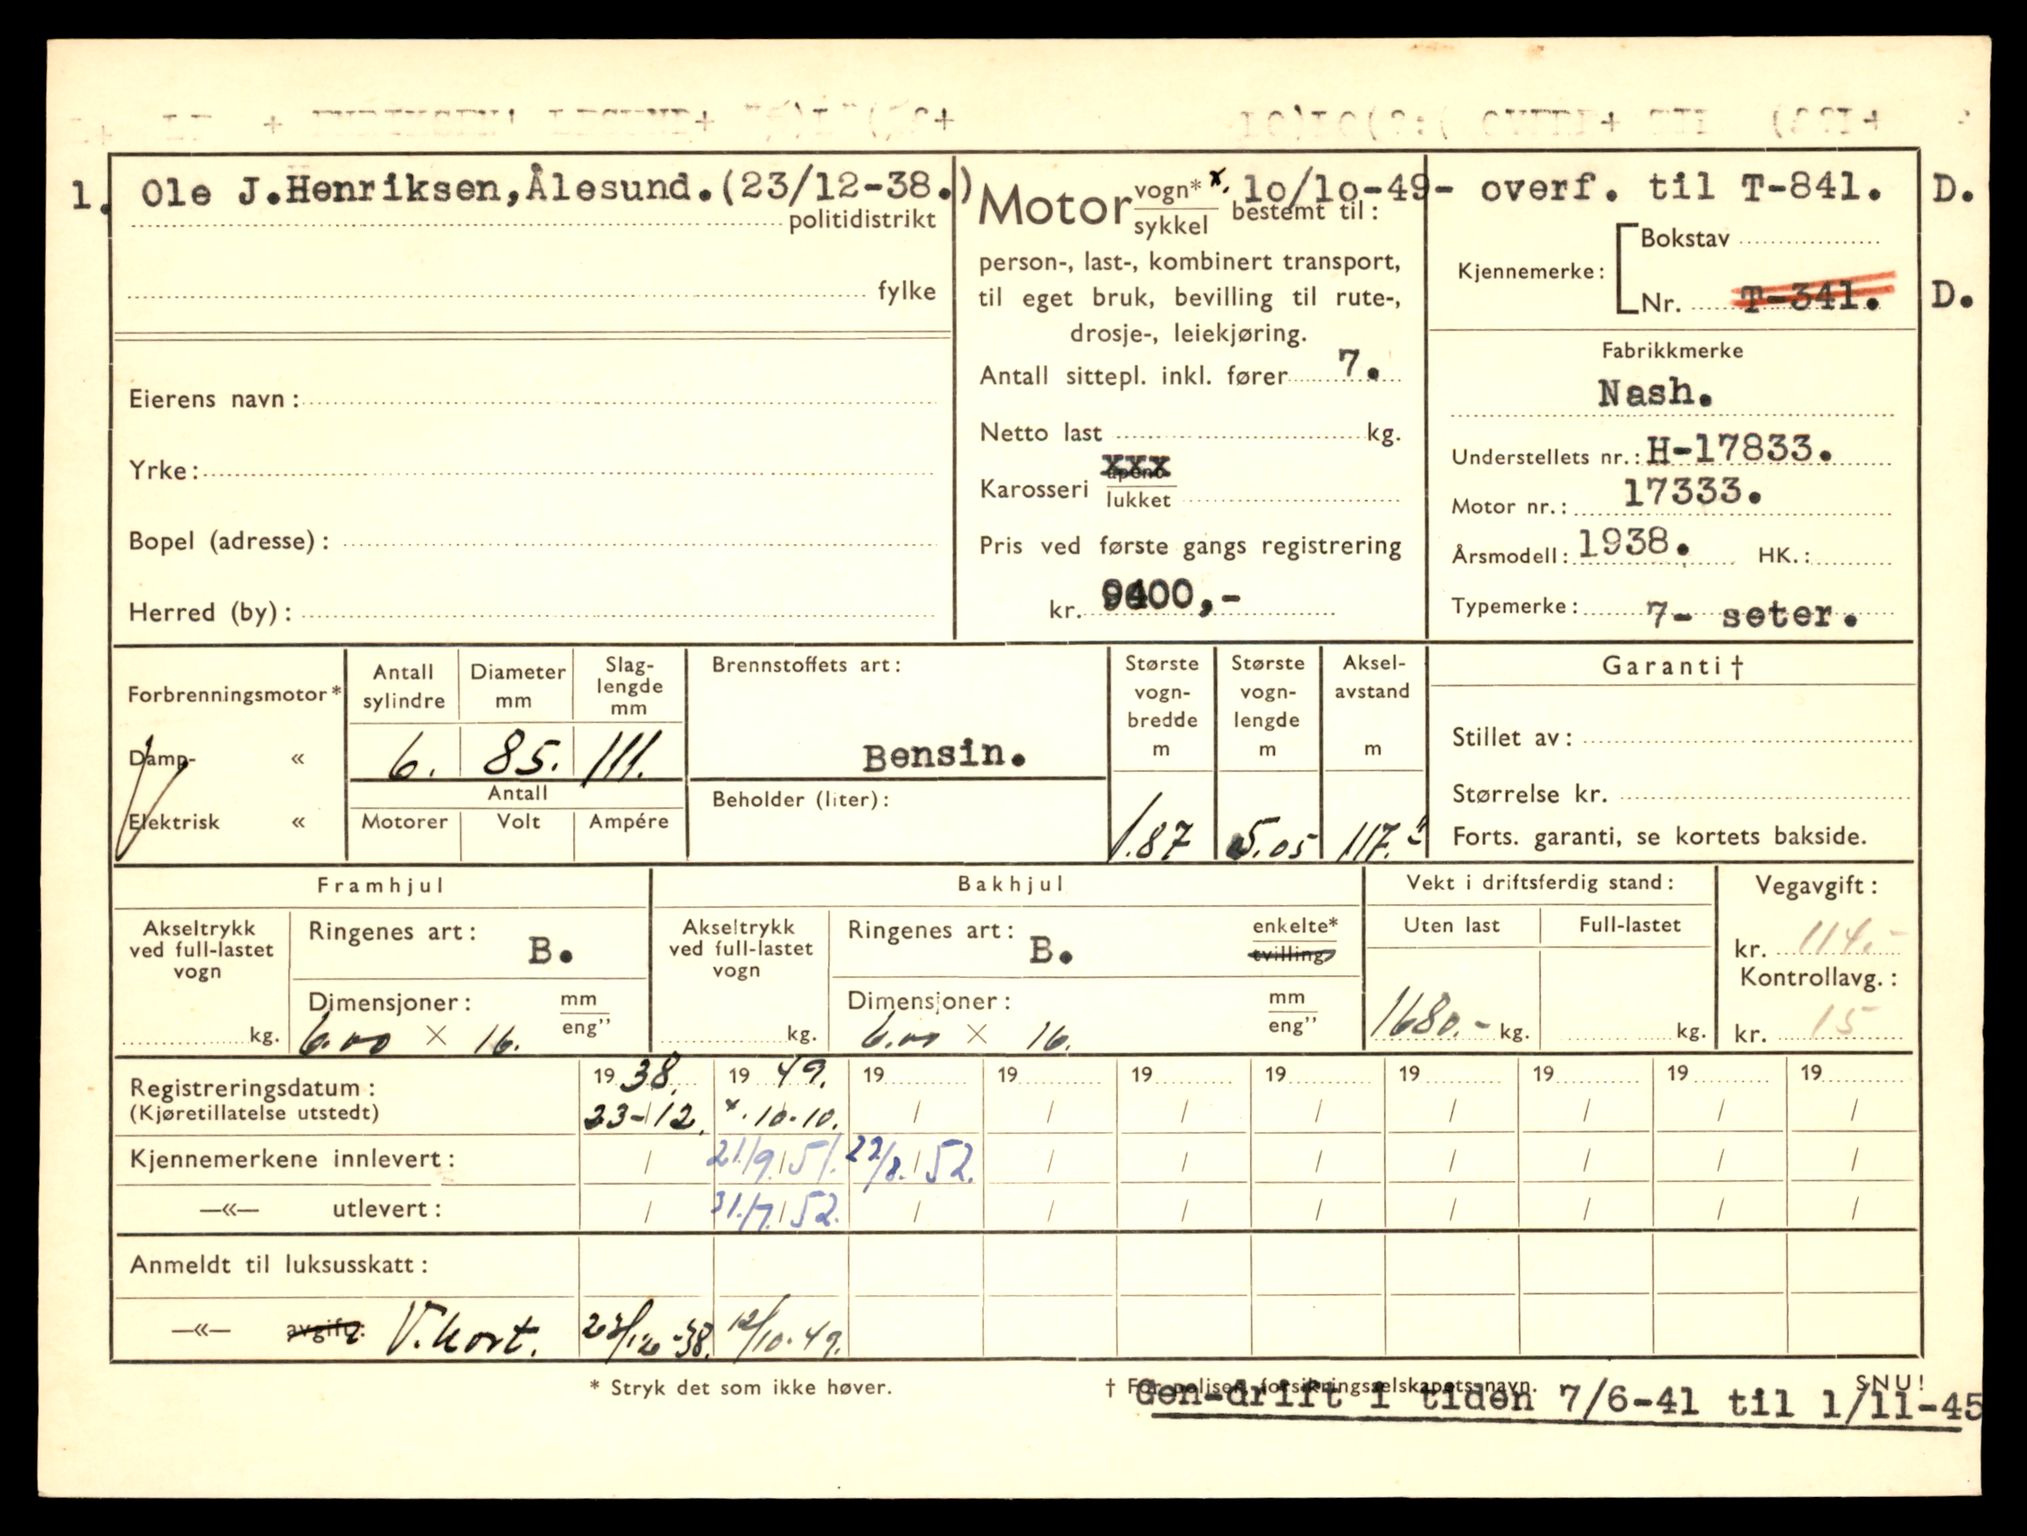 1. Ole J.Henriksen,Ålesund.(23/12-38.)
politidistrikt
fylke
Eierens navn:
Yrke:
Bopel (adresse):
Herred (by):
Motor vogn* x. 10/10-49- overf. til T-841. D.
sykkel bestemt til:
person-, last-, kombinert transport,
til eget bruk, bevilling til rute-,
drosje-, leiekjøring.
Antall sittepl. inkl. fører 7.
Netto last kg.
xxx
Karosseri
lukket
Pris ved første gangs registrering
kr. 9400,-
Bokstav
Kjennemerke:
Nr. T-341. D.
Fabrikkmerke
Nash.
Understellets nr.: H-17833.
Motor nr.: 17333.
Årsmodell: 1938. HK.:
Typemerke: 7- seter.
Forbrenningsmotor*
Damp- «
Elektrisk «
Antall sylindre
Diameter mm
Slag-lengde mm
6. 85. 111.
Antall
Motorer Volt Ampére
Brennstoffets art:
Bensin.
Beholder (liter):
Største vogn-bredde m
1.87
Største vogn-lengde m
5.05
Aksel-avstand m
117."
Garanti†
Stillet av:
Størrelse kr.
Forts. garanti, se kortets bakside.
Framhjul
Akseltrykk
ved full-lastet
vogn
kg.
Ringenes art: B.
Dimensjoner: mm
eng”
6.00 × 16.
Bakhjul
Akseltrykk
ved full-lastet
vogn
kg.
Ringenes art: B. enkelte*
tvilling
Dimensjoner: mm
eng”
6.00 × 16.
Vekt i driftsferdig stand:
Uten last Full-lastet
1680.- kg. kg.
Vegavgift:
kr. 114.-
Kontrollavg.:
kr. 15
Registreringsdatum: 19 38. 19 49. 19 19 19 19 19 19 19 19
(Kjøretillatelse utstedt) 23-12. x. 10-10. / / / / / / / /
Kjennemerkene innlevert: / 21/9 51. 22/8. 52. / / / / / / /
—«— utlevert: / 31/7. 52. / / / / / / / /
Anmeldt til luksusskatt:
—«— avgift: V.kort. 23/12-38. 12/10-49.
* Stryk det som ikke høver. † For poliser, forsikringsselskapets navn. SNU!
Gen-drift i tiden 7/6-41 til 1/11-45